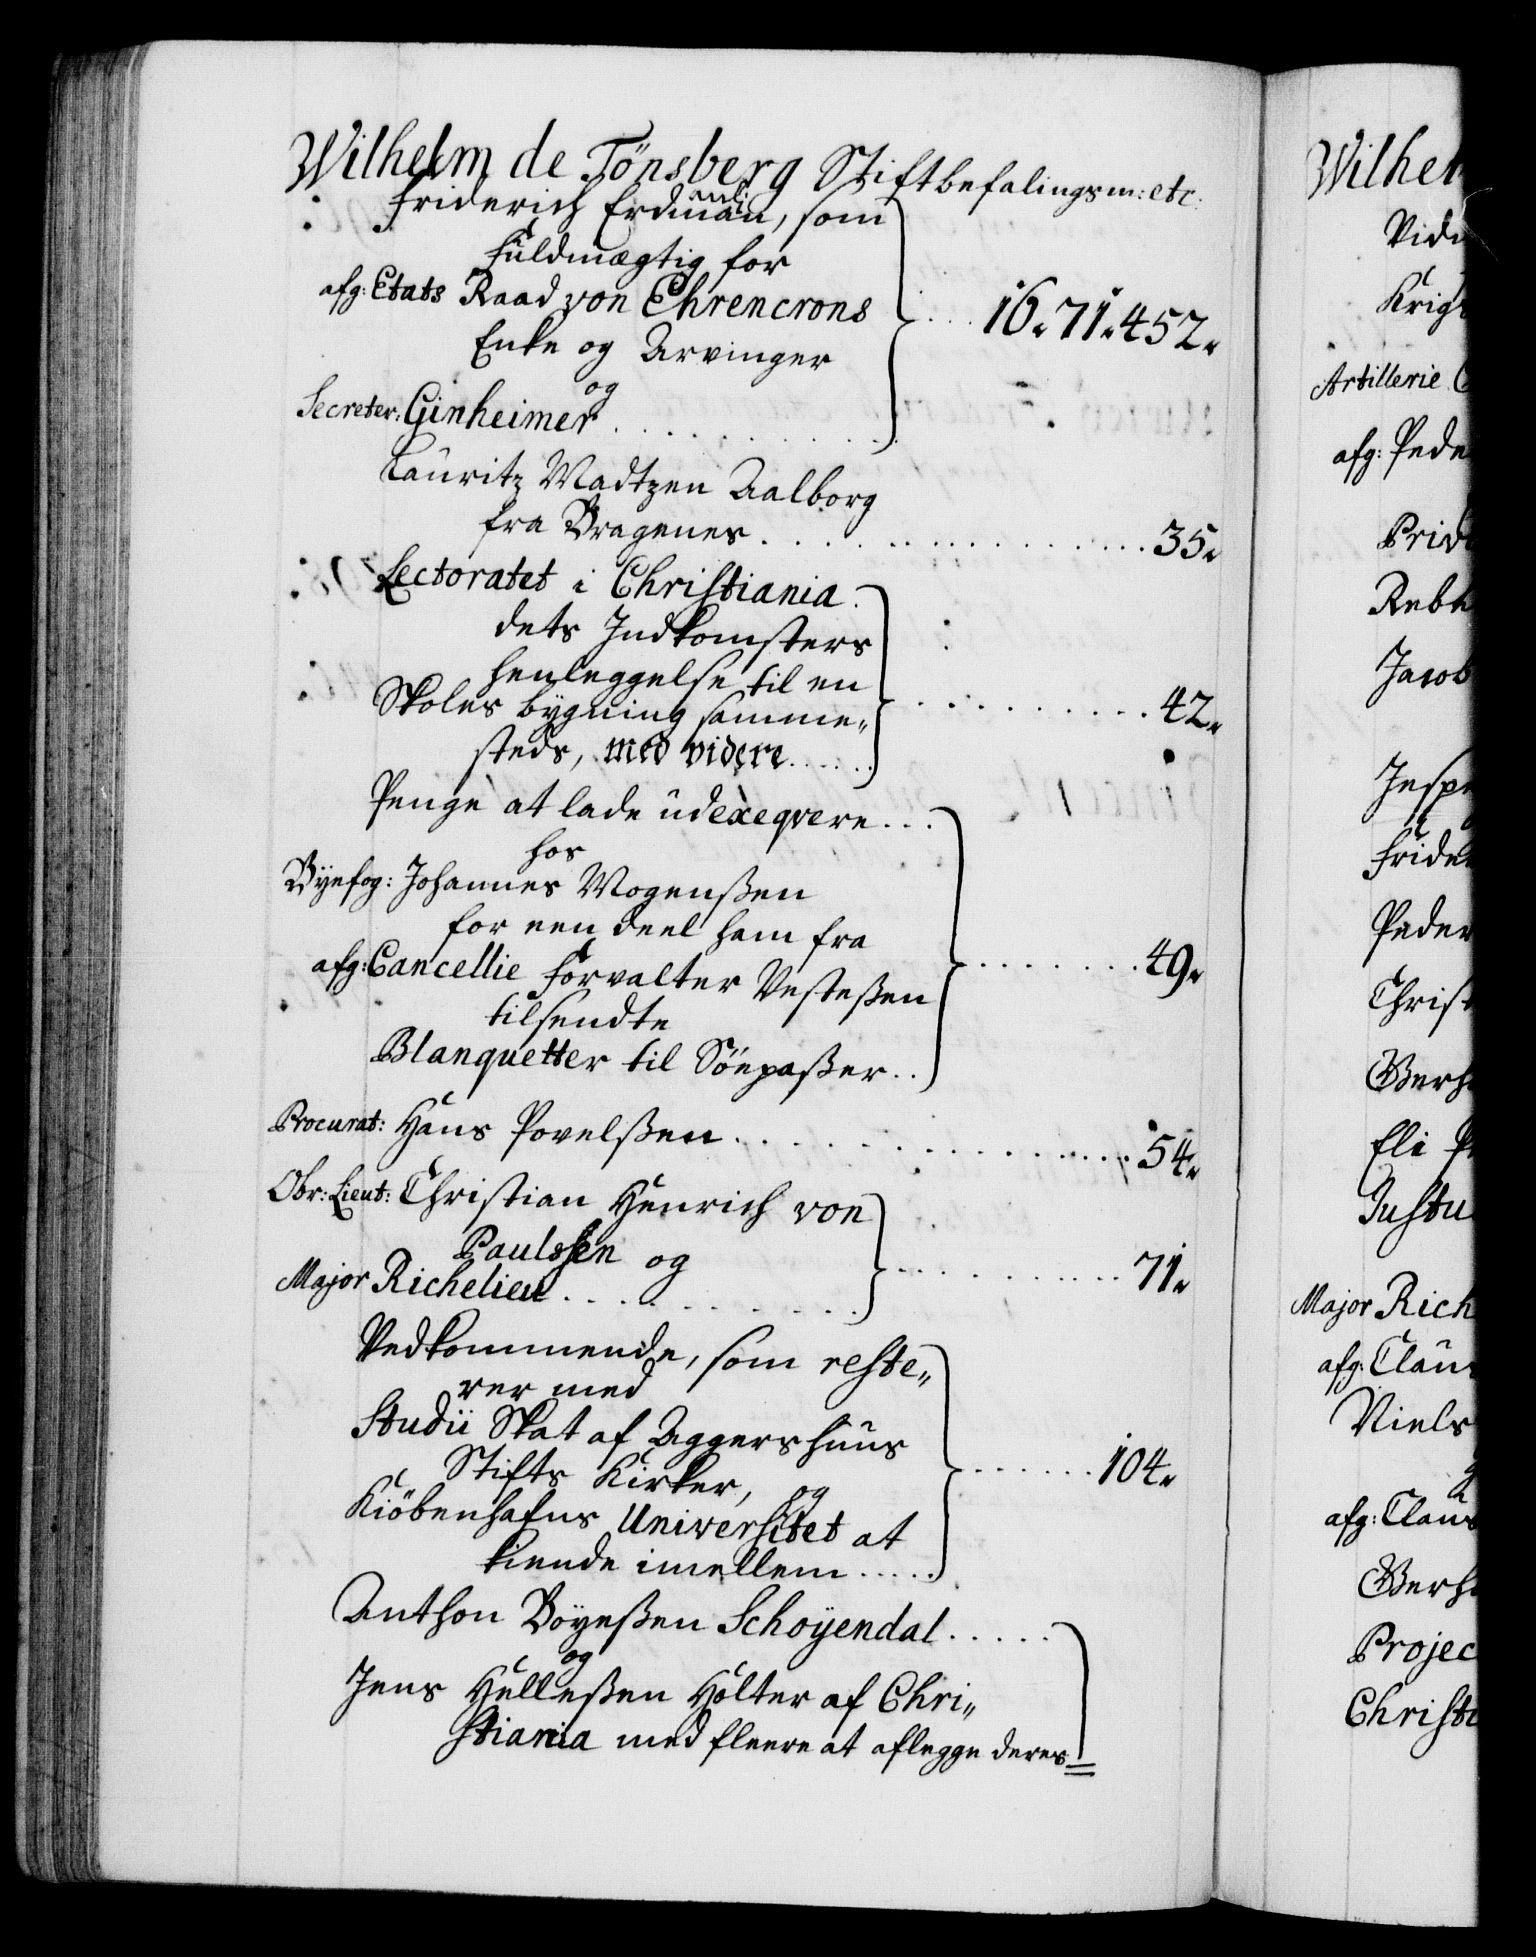 Wilhelm de Tönsberg Stiftbefalingsm: etc:
Friderich Erdman, som
Fuldmægtig for
afg: Etats Raad von Ehrencrons
Enke og Arvinger
og
Secreter: Ginheimer . . . 16. 71. 452.
Lauritz Madtzen Aalborg
fra Bragenes . . . 35.
Lectoratet i Christiania
dets Indkomsters
henleggelse til en
Skoles bygning samme„
steds, med videre . . . 42.
Penge at lade udexeqvere . . .
hos
Byefog: Johannes Mogenßen
for een deel ham fra
afg: Cancellie Forvalter Vesteßen
tilsendte
Blanquetter til Söepaßer . . 49.
Procurat: Hans Povelßen . . . 54.
Obr: Lieut: Christian Henrich von
Paulssen og
Major Richelieu . . . 71.
Vedkommende, som reste„
rer med
Studii Skat af Aggershuus
Stifts Kirker, og
Kiöbenhafns Universitet at
kiende imellem . . . 104.
Anthon Böyeßen Schoyendal . . .
og
Jens Helleßen Holter af Chri„
stiania med fleere at aflegge deres
Wilhel
Vid
Krig
Artillerie
afg: Pede
Jacob
Jespe
Frider
Peder
Christ
Gerh
Eli P
Justu
Major Rich
afg: Clau
Niels
afg: Claus
Gerh
Projec
Christi